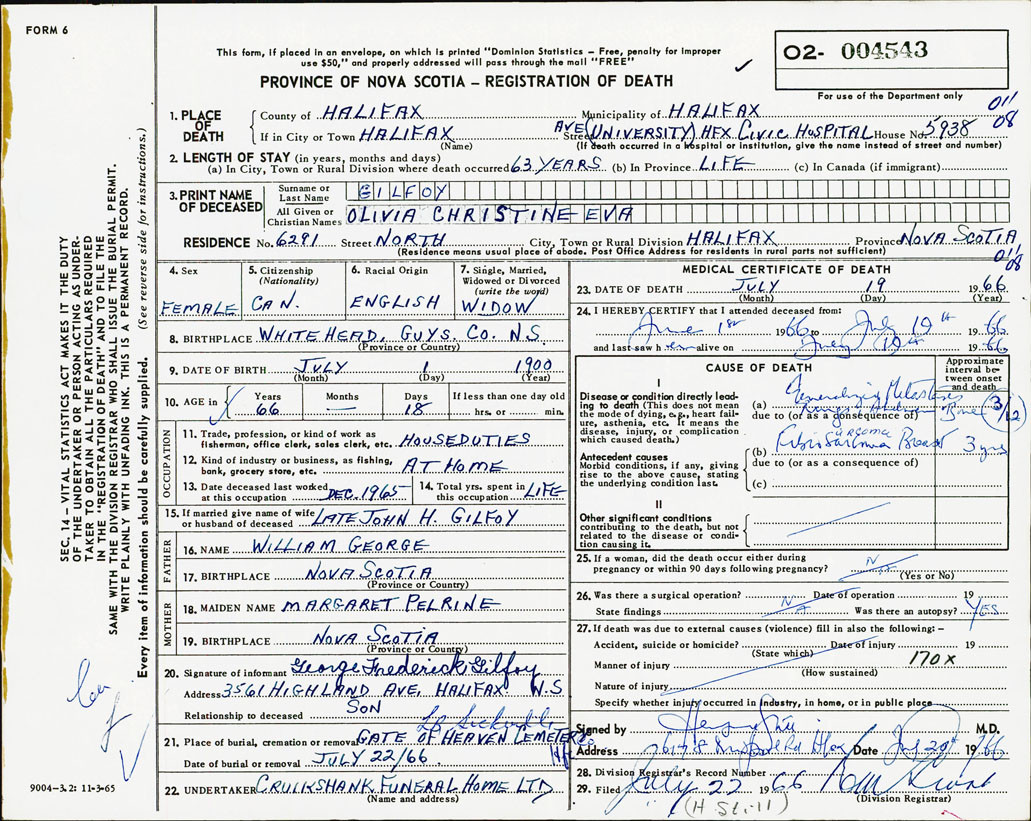 FORM 6
This form, if placed in an envelope, on which is printed "Dominion Statistics – Free, penalty for improper
use $50," and properly addressed will pass through the mail "FREE"
PROVINCE OF NOVA SCOTIA – REGISTRATION OF DEATH
O2- 004543
For use of the Department only
011
08
1. PLACE OF DEATH
County of HALIFAX Municipality of HALIFAX
If in City or Town HALIFAX Street (UNIVERSITY) AVE HFX CIVIC HOSPITAL House No. 5938
(Name) (If death occurred in a hospital or institution, give the name instead of street and number)
2. LENGTH OF STAY (in years, months and days)
(a) In City, Town or Rural Division where death occurred 63 YEARS (b) In Province LIFE (c) In Canada (if immigrant)
3. PRINT NAME OF DECEASED
Surname or Last Name GILFOY
All Given or Christian Names OLIVIA CHRISTINE EVA
RESIDENCE No. 6291 Street NORTH City, Town or Rural Division HALIFAX Province NOVA SCOTIA
(Residence means usual place of abode. Post Office Address for residents in rural parts not sufficient)
011
08
4. Sex
FEMALE
5. Citizenship (Nationality)
CAN.
6. Racial Origin
ENGLISH
7. Single, Married, Widowed or Divorced (write the word)
WIDOW
8. BIRTHPLACE WHITEHEAD, GUYS. CO. N.S.
(Province or Country)
9. DATE OF BIRTH JULY 1 1900
(Month) (Day) (Year)
10. AGE in Years Months Days If less than one day old
66 — 18 hrs. or min.
OCCUPATION
11. Trade, profession, or kind of work as fisherman, office clerk, sales clerk, etc. HOUSEDUTIES
12. Kind of industry or business, as fishing, bank, grocery store, etc. AT HOME
13. Date deceased last worked at this occupation DEC. 1965
14. Total yrs. spent in this occupation LIFE
15. If married give name of wife or husband of deceased LATE JOHN H. GILFOY
FATHER
16. NAME WILLIAM GEORGE
17. BIRTHPLACE NOVA SCOTIA
(Province or Country)
MOTHER
18. MAIDEN NAME MARGARET PELRINE
19. BIRTHPLACE NOVA SCOTIA
(Province or Country)
20. Signature of informant George Frederick Gilfoy
Address 3561 HIGHLAND AVE, HALIFAX N.S
Relationship to deceased SON
21. Place of burial, cremation or removal GATE OF HEAVEN CEMETERY
Date of burial or removal JULY 22/66
22. UNDERTAKER CRUIKSHANK FUNERAL HOME LTD
(Name and address)
MEDICAL CERTIFICATE OF DEATH
23. DATE OF DEATH JULY 19 1966
(Month) (Day) (Year)
24. I HEREBY CERTIFY that I attended deceased from:
June 1st 1966 to July 19th 1966
and last saw her alive on July 19th 1966
CAUSE OF DEATH
Approximate interval between onset and death
I
Disease or condition directly leading to death (This does not mean the mode of dying, e.g., heart failure, asthenia, etc. It means the disease, injury, or complication which caused death.)
(a) Metastases 3/12
due to (or as a consequence of) Bone
Antecedent causes
Morbid conditions, if any, giving rise to the above cause, stating the underlying condition last.
(b) Breast 3 yrs
due to (or as a consequence of)
(c)
II
Other significant conditions contributing to the death, but not related to the disease or condition causing it.
25. If a woman, did the death occur either during pregnancy or within 90 days following pregnancy?
(Yes or No)
26. Was there a surgical operation? Date of operation 19
State findings N/A Was there an autopsy? YES
27. If death was due to external causes (violence) fill in also the following: –
Accident, suicide or homicide? Date of injury 19
(State which)
Manner of injury 170X
(How sustained)
Nature of injury
Specify whether injury occurred in industry, in home, or in public place
Signed by M.D.
Address Date July 20th 1966
28. Division Registrar's Record Number
29. Filed July 22 1966
(Division Registrar)
(H. Still)
SEC. 14 – VITAL STATISTICS ACT MAKES IT THE DUTY
OF THE UNDERTAKER OR PERSON ACTING AS UNDER-
TAKER TO OBTAIN ALL THE PARTICULARS REQUIRED
IN THE "REGISTRATION OF DEATH" AND TO FILE THE
SAME WITH THE DIVISION REGISTRAR WHO SHALL ISSUE THE BURIAL PERMIT.
WRITE PLAINLY WITH UNFADING INK. THIS IS A PERMANENT RECORD.
Every item of information should be carefully supplied. (See reverse side for instructions.)
9004-3.2: 11-3-65